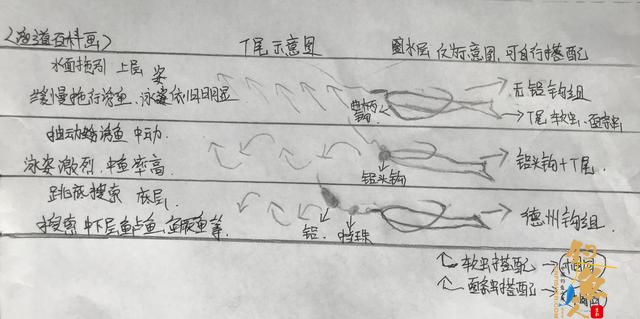 《渔道百科画》
T尾示意图
圈水层 仅为示意图,可自行搭配
水面拖列 上层 姿
缓慢拖行诱鱼,泳姿依旧明显
曲柄钩
无铅钩组
T尾 软虫、面条虫
抽动 诱鱼 中动.
泳姿激烈.中鱼率高.
铅头钩
铅头钩+T尾.
跳底搜索 底层.
搜索中下层鱼 鱼,鳜鱼等.
铅.
挡珠
德州钩组.
软虫搭配→相同
面条虫搭配→